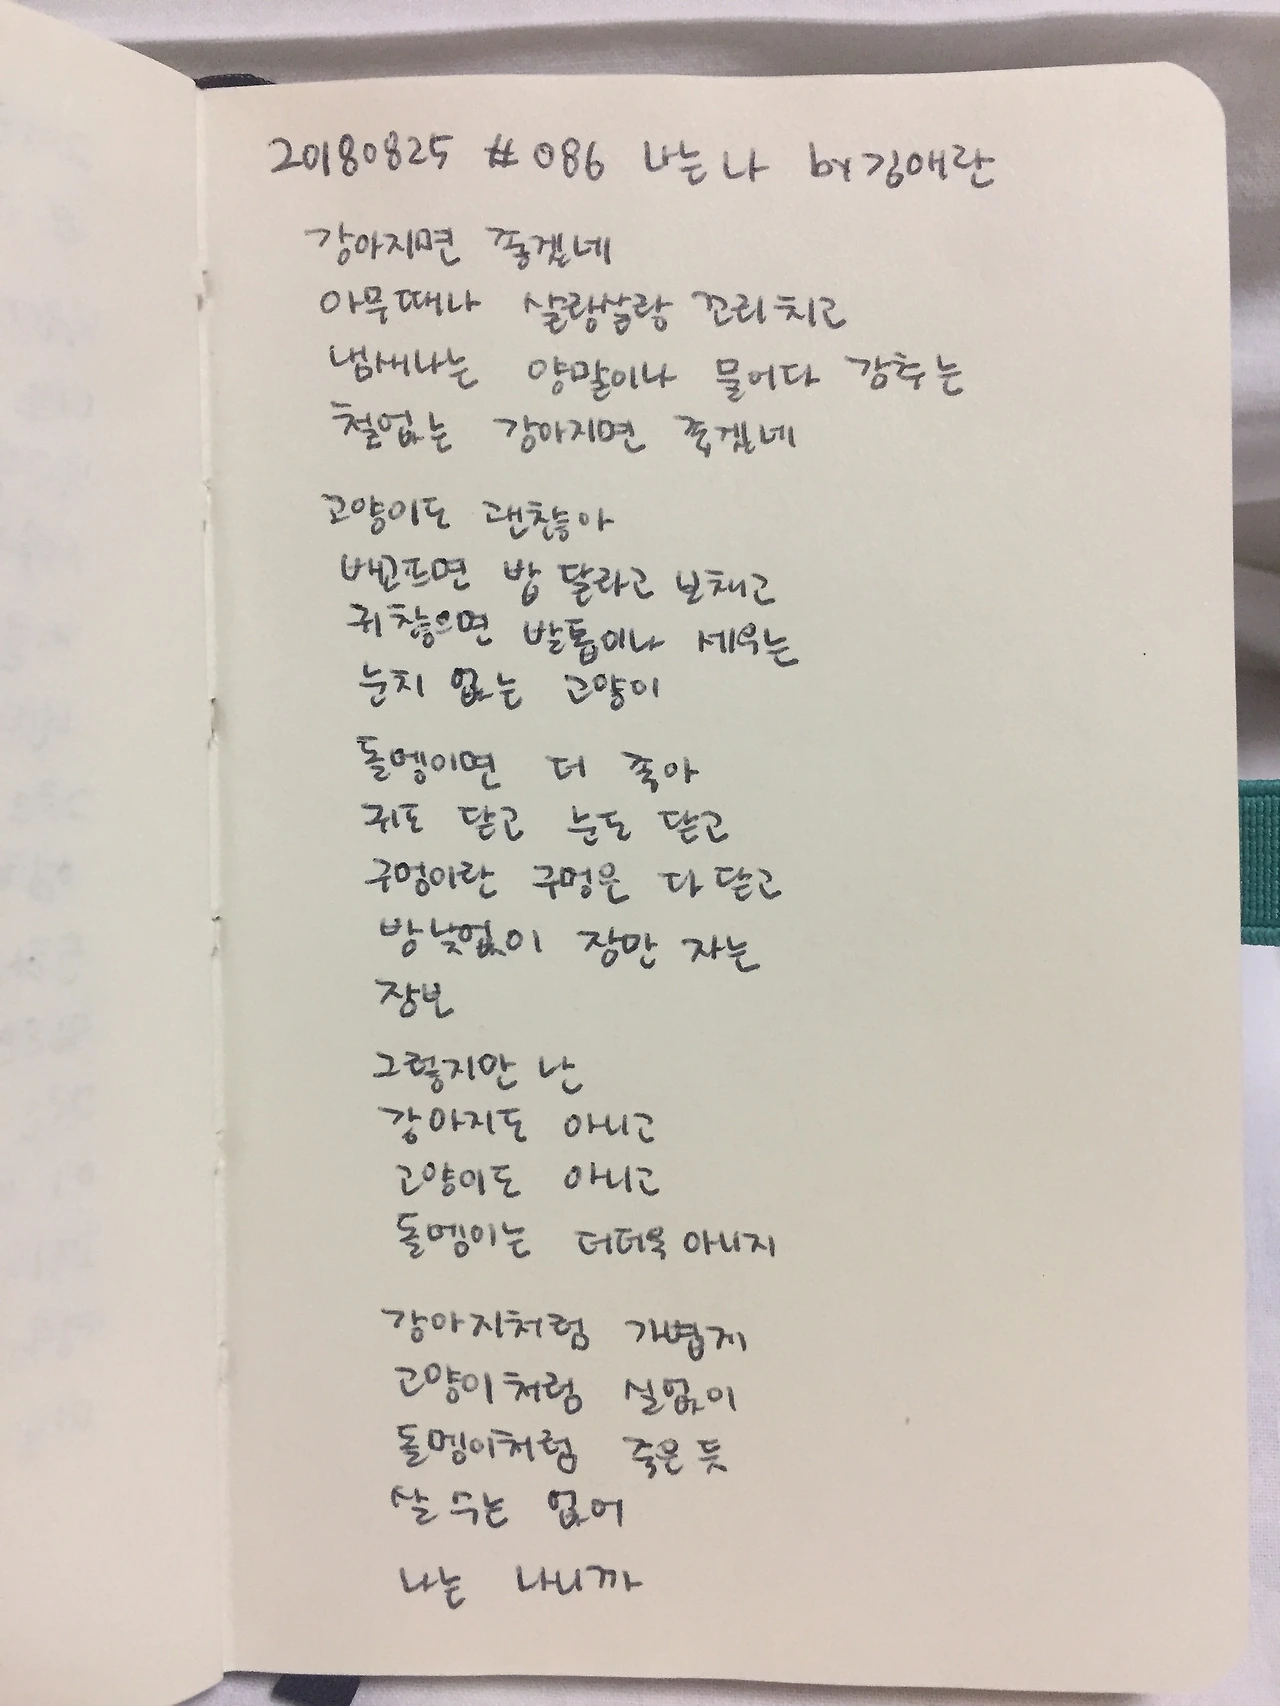 20180825 #086 나는 나 by 김애란
강아지면 좋겠네
아무때나 살랑살랑 꼬리치고
냄새나는 양말이나 물어다 감추는
철없는 강아지면 좋겠네
고양이도 괜찮아
배고프면 밥 달라고 보채고
귀찮으면 발톱이나 세우는
눈치 없는 고양이
돌멩이면 더 좋아
귀도 닫고 눈도 닫고
구멍이란 구멍은 다 닫고
밤낮없이 잠만 자는
잠보
그렇지만 난
강아지도 아니고
고양이도 아니고
돌멩이는 더더욱 아니지
강아지처럼 가볍게
고양이처럼 실없이
돌멩이처럼 죽은 듯
살 수는 없어
나는 나니까